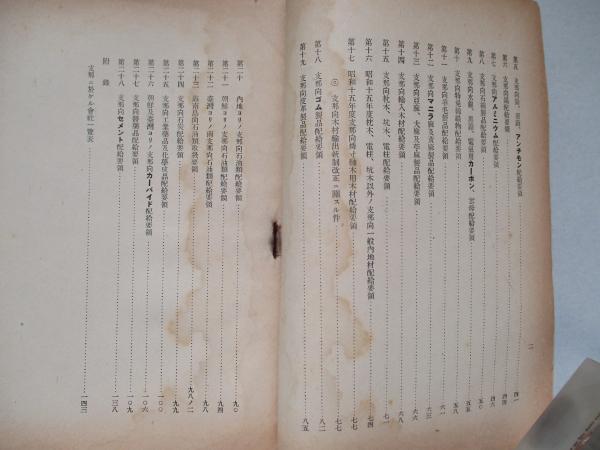 二
第五 支那向鉛、亜鉛、アンチモン配給要領 四一
第六 支那向錫配給要領 四四
第七 支那向アルミニウム配給要領 四六
第八 支那向石綿製品配給要領 五〇
第九 支那向水銀、黒鉛、電氣用カーボン、雲母配給要領 五五
第十 支那向特免綿織物配給要領 五八
第十一 支那向羊毛製品配給要領 六一
第十二 支那向マニラ麻及支麻製品配給要領 六三
第十三 支那向亞麻、大麻及苧麻製品配給要領 六六
第十四 支那向輸入木材配給要領 六八
第十五 支那向枕木、坑木、電柱配給要領 七一
第十六 昭和十五年度枕木、電柱、坑木以外ノ支那向一般內地材配給要領 七四
第十七 昭和十五年度支那向燐寸軸木用木材配給要領 七七
支那向木材輸出統制改正ニ關スル件 七七
第十八 支那向ゴム製品配給要領 八二
第十九 支那向皮革製品配給要領 八五
第二十 內地ヨリノ支那向石油類配給要領 九〇
第二十一 朝鮮ヨリノ支那向石油類配給要綱 九四
第二十二 臺灣ヨリノ南支那向石油類配給要領 九八
第二十三 海南島向石油類取扱要領 九八ノ二
第二十四 支那向石炭配給要領 九九
第二十五 支那向工業藥品及化學成品配給要領
第二十六 朝鮮及臺灣ヨリノ支那向カーバイド配給要領 一〇六
第二十七 支那向醫藥品配給要領 一〇九
第二十八 支那向セメント配給要領 一三八
附錄
支那ニ於ケル會社一覽表 一四三